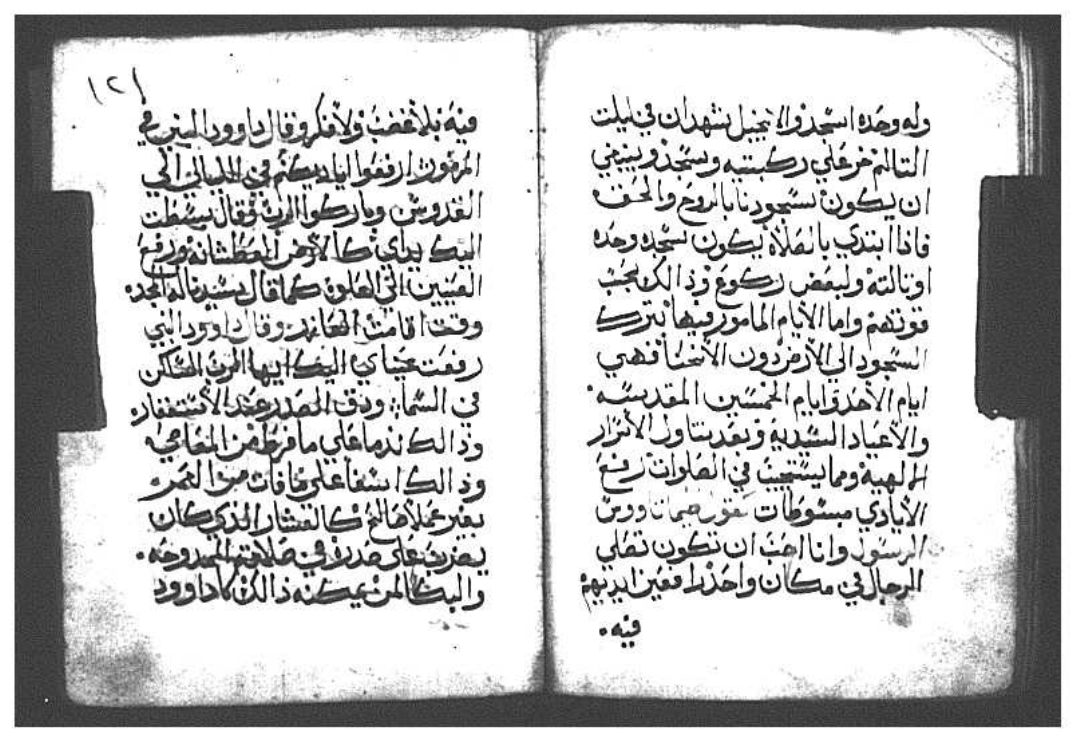 وله وحده اسجد والانجيل تشهد ان في ليلت
التالم خر علي ركبتيه وسجد وينبغي
ان يكون سجودنا بالروح والحق
فاذا ابتدي بالصلاة يكون سجده وحده
او تالته ولبعض ركوع وذالك بحسب
قوتهم واما الايام المامور فيها بترك
السجود الي الارض دون الانحنا فهي
ايام الاحد وايام الخمسين المقدسه
والاعياد السيديه وبعد تناول الاسرار
الالهية ومما يستجب في الصلوات رفع
الايادي مبسوطات بولس
الرسول وانا احب ان تكون تصلي
الرجال في مكان واحد رافعين ايديهم
فيه
١٢١
فيه بلا غضب ولا فكر وقال داوود النبي في
المزمور ارفعوا اياديكم في الليالي الي
القدوس وباركوا الرب وقال بسطت
اليك يداي كالارض العطشانه ورفع
العينين الي العلو كما قال سيدنا له المجد
وقت اقامت العازر وقال داوود النبي
رفعت عيناي اليك ايها الرب الساكن
في السما ودق الصدر عند الاستغفار
وذالك ندما علي ما فرط من المعاصي
وذالك اسفا علي ما فات من العمر
بغير عملا صالح كالعشار الذي كان
يضرب علي صدره في صلاته الممدوحه
والبكا لمن يمكنه ذالك كداوود